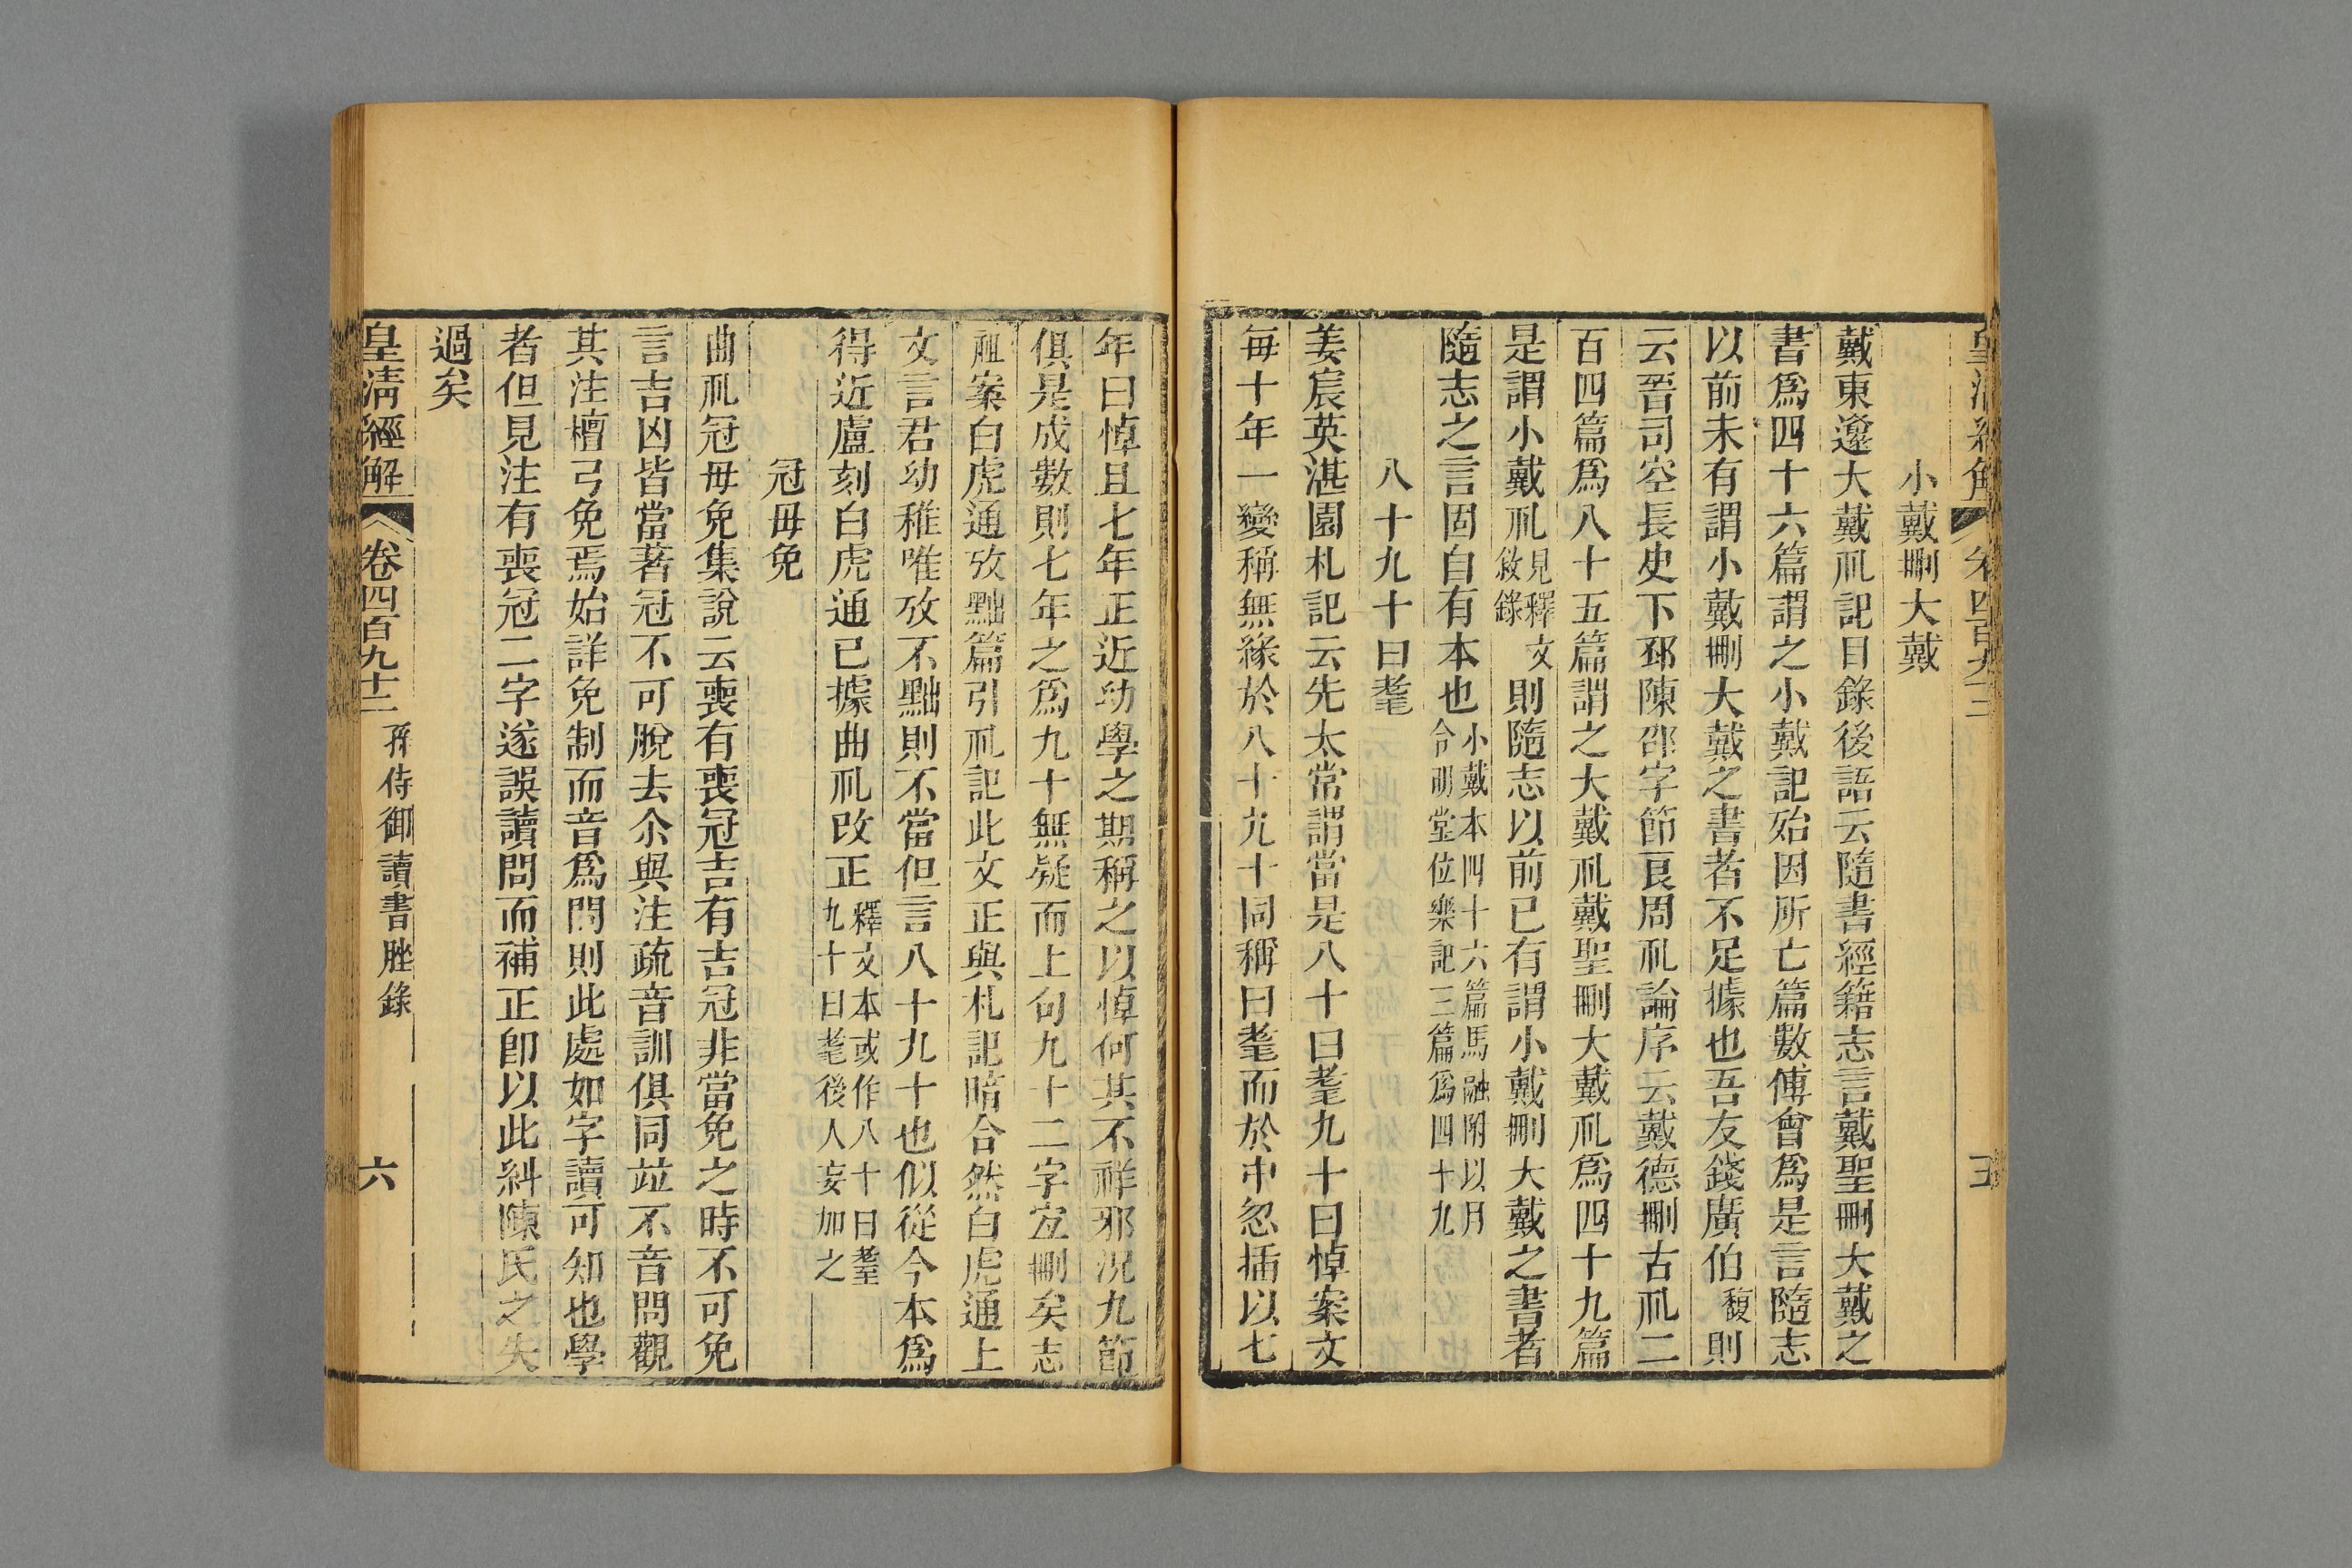 皇清經解 卷四百九十三 五
小戴刪大戴
戴東邍大戴礼記目錄後語云隨書經籍志言戴聖刪大戴之
書爲四十六篇謂之小戴記殆因所亡篇數傅會爲是言隨志
以前未有謂小戴刪大戴之書者不足據也吾友錢廣伯馥則
云晉司空長史下邳陳邵字節良周礼論序云戴德刪古礼二
百四篇爲八十五篇謂之大戴礼戴聖刪大戴礼爲四十九篇
是謂小戴礼見釋文敘錄則隨志以前已有謂小戴刪大戴之書者
隨志之言固自有本也小戴本四十六篇馬融附以月令明堂位樂記三篇爲四十九
八十九十曰耄
姜宸英湛園札記云先太常謂當是八十曰耄九十曰悼案文
每十年一變稱無緣於八十九十同稱曰耄而於中忽插以七
年曰悼且七年正近幼學之期稱之以悼何其不祥邪況九節
俱是成數則七年之爲九十無疑而上句九十二字宜刪矣志
祖案白虎通攷黜篇引礼記此文正與札記暗合然白虎通上
文言君幼稚唯攷不黜則不當但言八十九十也似從今本爲
得近盧刻白虎通已據曲礼改正釋文本或作八十曰耋九十曰耄後人妄加之
冠毋免
曲礼冠毋免集說云喪有喪冠吉有吉冠非當免之時不可免
言吉凶皆當著冠不可脫去尒與注疏音訓俱同竝不音問觀
其注檀弓免焉始詳免制而音爲問則此處如字讀可知也學
者但見注有喪冠二字遂誤讀問而補正卽以此糾陳氏之失
過矣
皇清經解 卷四百九十三 孫侍御讀書脞錄 六